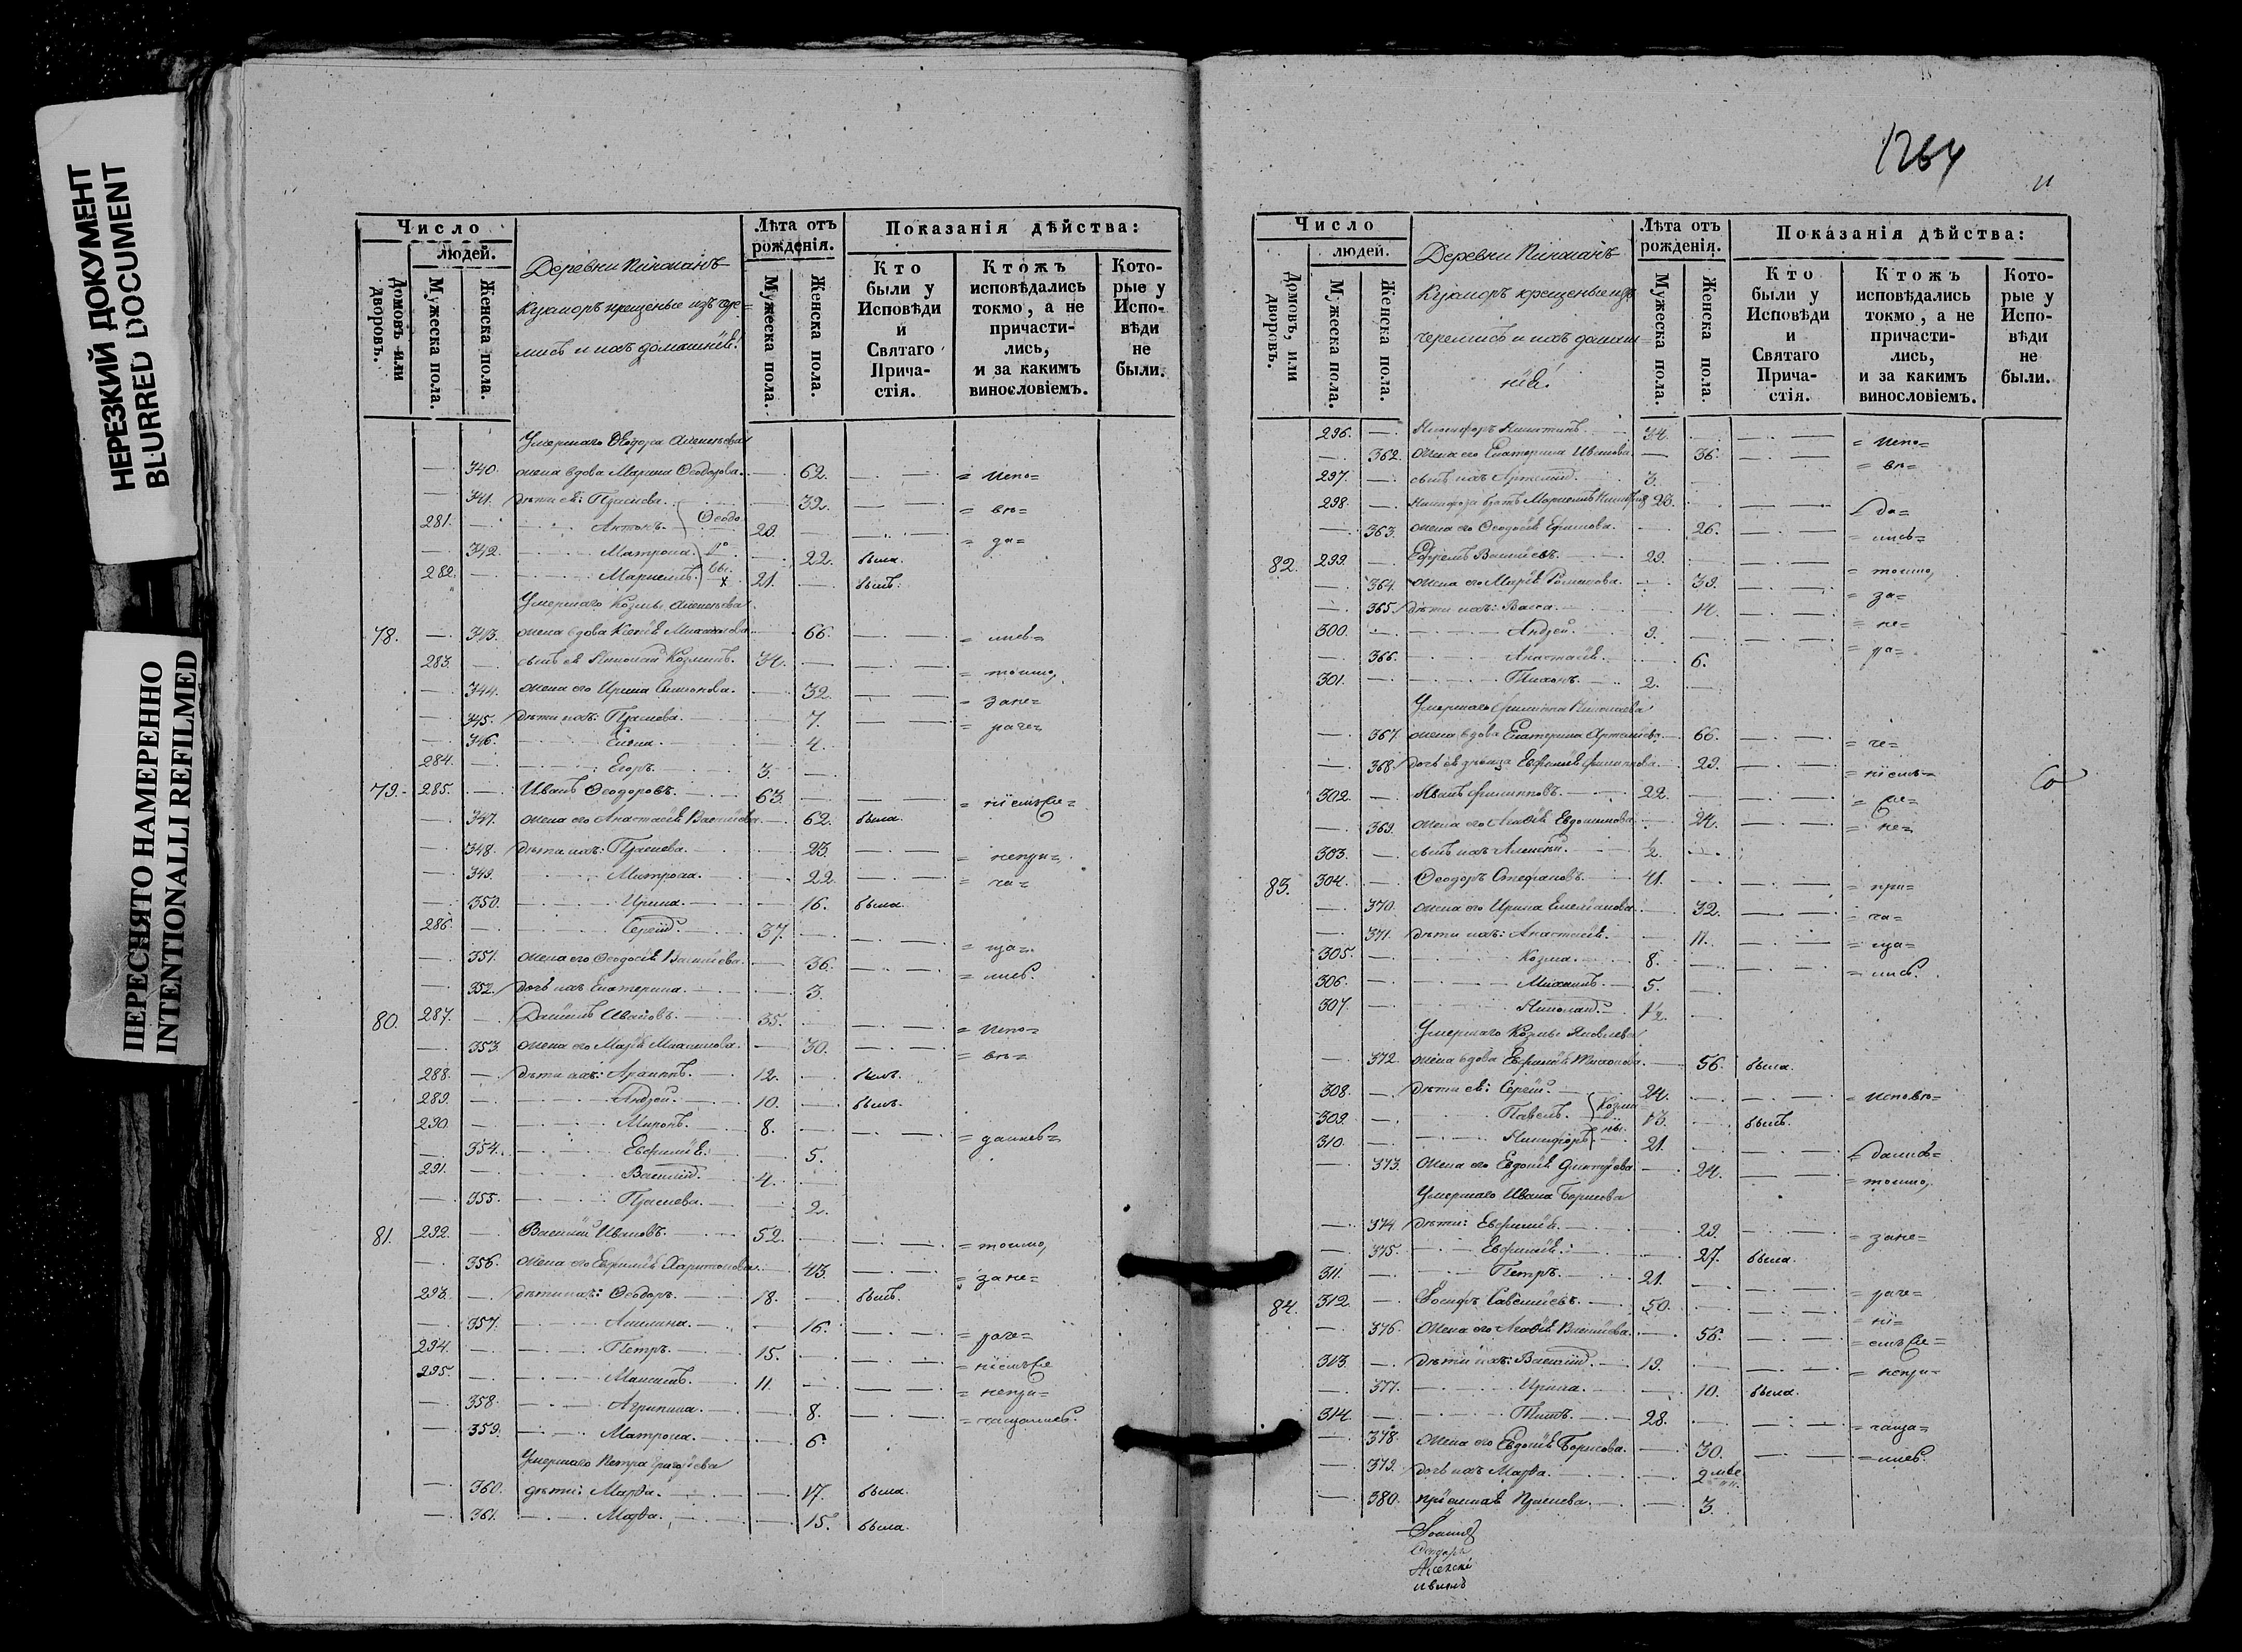 НЕРЕЗКИЙ ДОКУМЕНТ
BLURRED DOCUMENT
ПЕРЕСНЯТО НАМЕРЕННО
INTENTIONALLI REFILMED
Число
людей.
Домовъ или дворовъ.
Мужеска пола.
Женска пола.
Деревни
Кужморъ крещеные изъ чере=
мисъ и ихъ домашнiе:
Лѣта отъ рожденія.
Мужеска пола.
Женска пола.
Показанія дѣйства:
Кто были у Исповѣди и Святаго Прича-стія.
Ктожъ исповѣдались токмо, а не причасти-лись, и за какимъ винословіемъ.
Кото-рые у Испо-вѣди не были.
Умершаго Ѳеодора
340. жена вдова Марина Ѳеодорова. 62. = испо=
341. дѣти ея: Праскева. 32. = вѣ=
281. Антонъ. 20. = да=
342. Матрона. 22. была.
282. 21. былъ.
Умершаго Козмы
78. 343. жена вдова Ксенія 66. = лись=
283. сынъ ея Николай Козминъ. 34. = токмо,
344. жена его Ирина 32. = зане=
345. дѣти ихъ: Праскева. 7. = раче=
346. Елена. 4.
284. Егоръ. 3.
79. 285. Иванъ Ѳеодоровъ. 63. = нiемъ
347. жена его Анастасія Васильева. 62. была.
348. дѣти ихъ: Праскева. 23. = непри=
349. Матрона. 22. = ча=
350. Ирина. 16. была.
286. Сергiй. 37. = ща=
351. жена его Ѳеодосія Васильева. 36. = лись.
352. дочь ихъ Екатерина. 3.
80. 287. Данiилъ Ивановъ. 35. = испо=
353. жена его Марія 30. = вѣ=
288. дѣти ихъ: Архиппъ. 12. былъ.
289. Андрей. 10. былъ.
290. Миронъ. 8. = дались=
354. Евфимія. 5.
291. Василій. 4.
355. Праскева. 2.
81. 292. Василій Ивановъ. 52. = токмо,
356. жена его Евфимія Харитонова. 43. = зане=
293. дѣти ихъ: Ѳеодоръ. 18. былъ.
357. Акилина. 16. = раче=
294. Петръ. 15. = нiемъ
295. Максимъ. 11. = непри=
358. Агрипина. 8. = чащались.
359. Матрона. 6.
Умершаго Петра Григорьева
360. дѣти: Марѳа. 17. была.
361. Марѳа. 15. была.
1264
Число
людей.
Домовъ, или дворовъ.
Мужеска пола.
Женска пола.
Деревни
Кужморъ крещеные изъ
черемисъ и ихъ домаш=
нiе:
Лѣта отъ рожденія.
Мужеска пола.
Женска пола.
Показанія дѣйства:
Кто были у Исповѣди и Святаго Прича-стія.
Ктожъ исповѣдались токмо, а не причасти-лись, и за какимъ винословіемъ.
Кото-рые у Испо-вѣди не были.
296. Никифоръ Никитинъ. 34. = испо=
362. жена его Екатерина Иванова. 36. = вѣ=
297. сынъ ихъ Артемій. 3.
298. Никифора братъ 28. = да=
363. жена его Ѳеодосія Ефимова. 26. = лись=
82. 299. Ефремъ Васильевъ. 29. = токмо,
364. жена его Марія Романова. 39. = за=
365. дѣти ихъ: Васса. 14. = не=
300. Андрей. 9. = ра=
366. Анастасія. 6.
301. Тихонъ. 2.
Умершаго Филиппа Николаева
367. жена вдова Екатерина Артемьева. 66. = че=
368. дочь ея дѣвица Евфимія Филиппова 29. = нiемъ=
302. Иванъ Филипповъ. 22.
369. жена его Агаѳія Евдокимова. 24. = не=
303. сынъ ихъ Алексѣй. ½.
83. 304. Ѳеодоръ Стефановъ. 41. = при=
370. жена его Ирина Емелианова. 32. = ча=
371. дѣти ихъ: Анастасія. 11. = ща=
305. Козма. 8. = лись.
306. Михаилъ. 5.
307. Николай. 1½.
Умершаго Козмы Яковлева
372. жена вдова Евфимія Тихонова. 56. была.
308. дѣти ея: Сергiй. 24. = исповѣ=
309. Павелъ. 13. былъ.
310. Никифоръ. 21. = дались=
373. жена его Евдокія 24. = токмо,
Умершаго Ивана Борисова
374. дѣти: Евфимія. 29. = зане=
375. Евфимія. 27. была.
311. Петръ. 21. = раче=
84. 312. Іосифъ Савельевъ. 50. = нi=
376. жена его Агаѳія Васильева. 56.
313. дѣти ихъ: Василій. 19. = непри=
377. Ирина. 10. была.
314. Титъ. 28. = чаща=
378. жена его Евдокія Борисова. 30. = лись.
379. дочь ихъ Марѳа. 2 мѣс.
380. Праскева. 3.